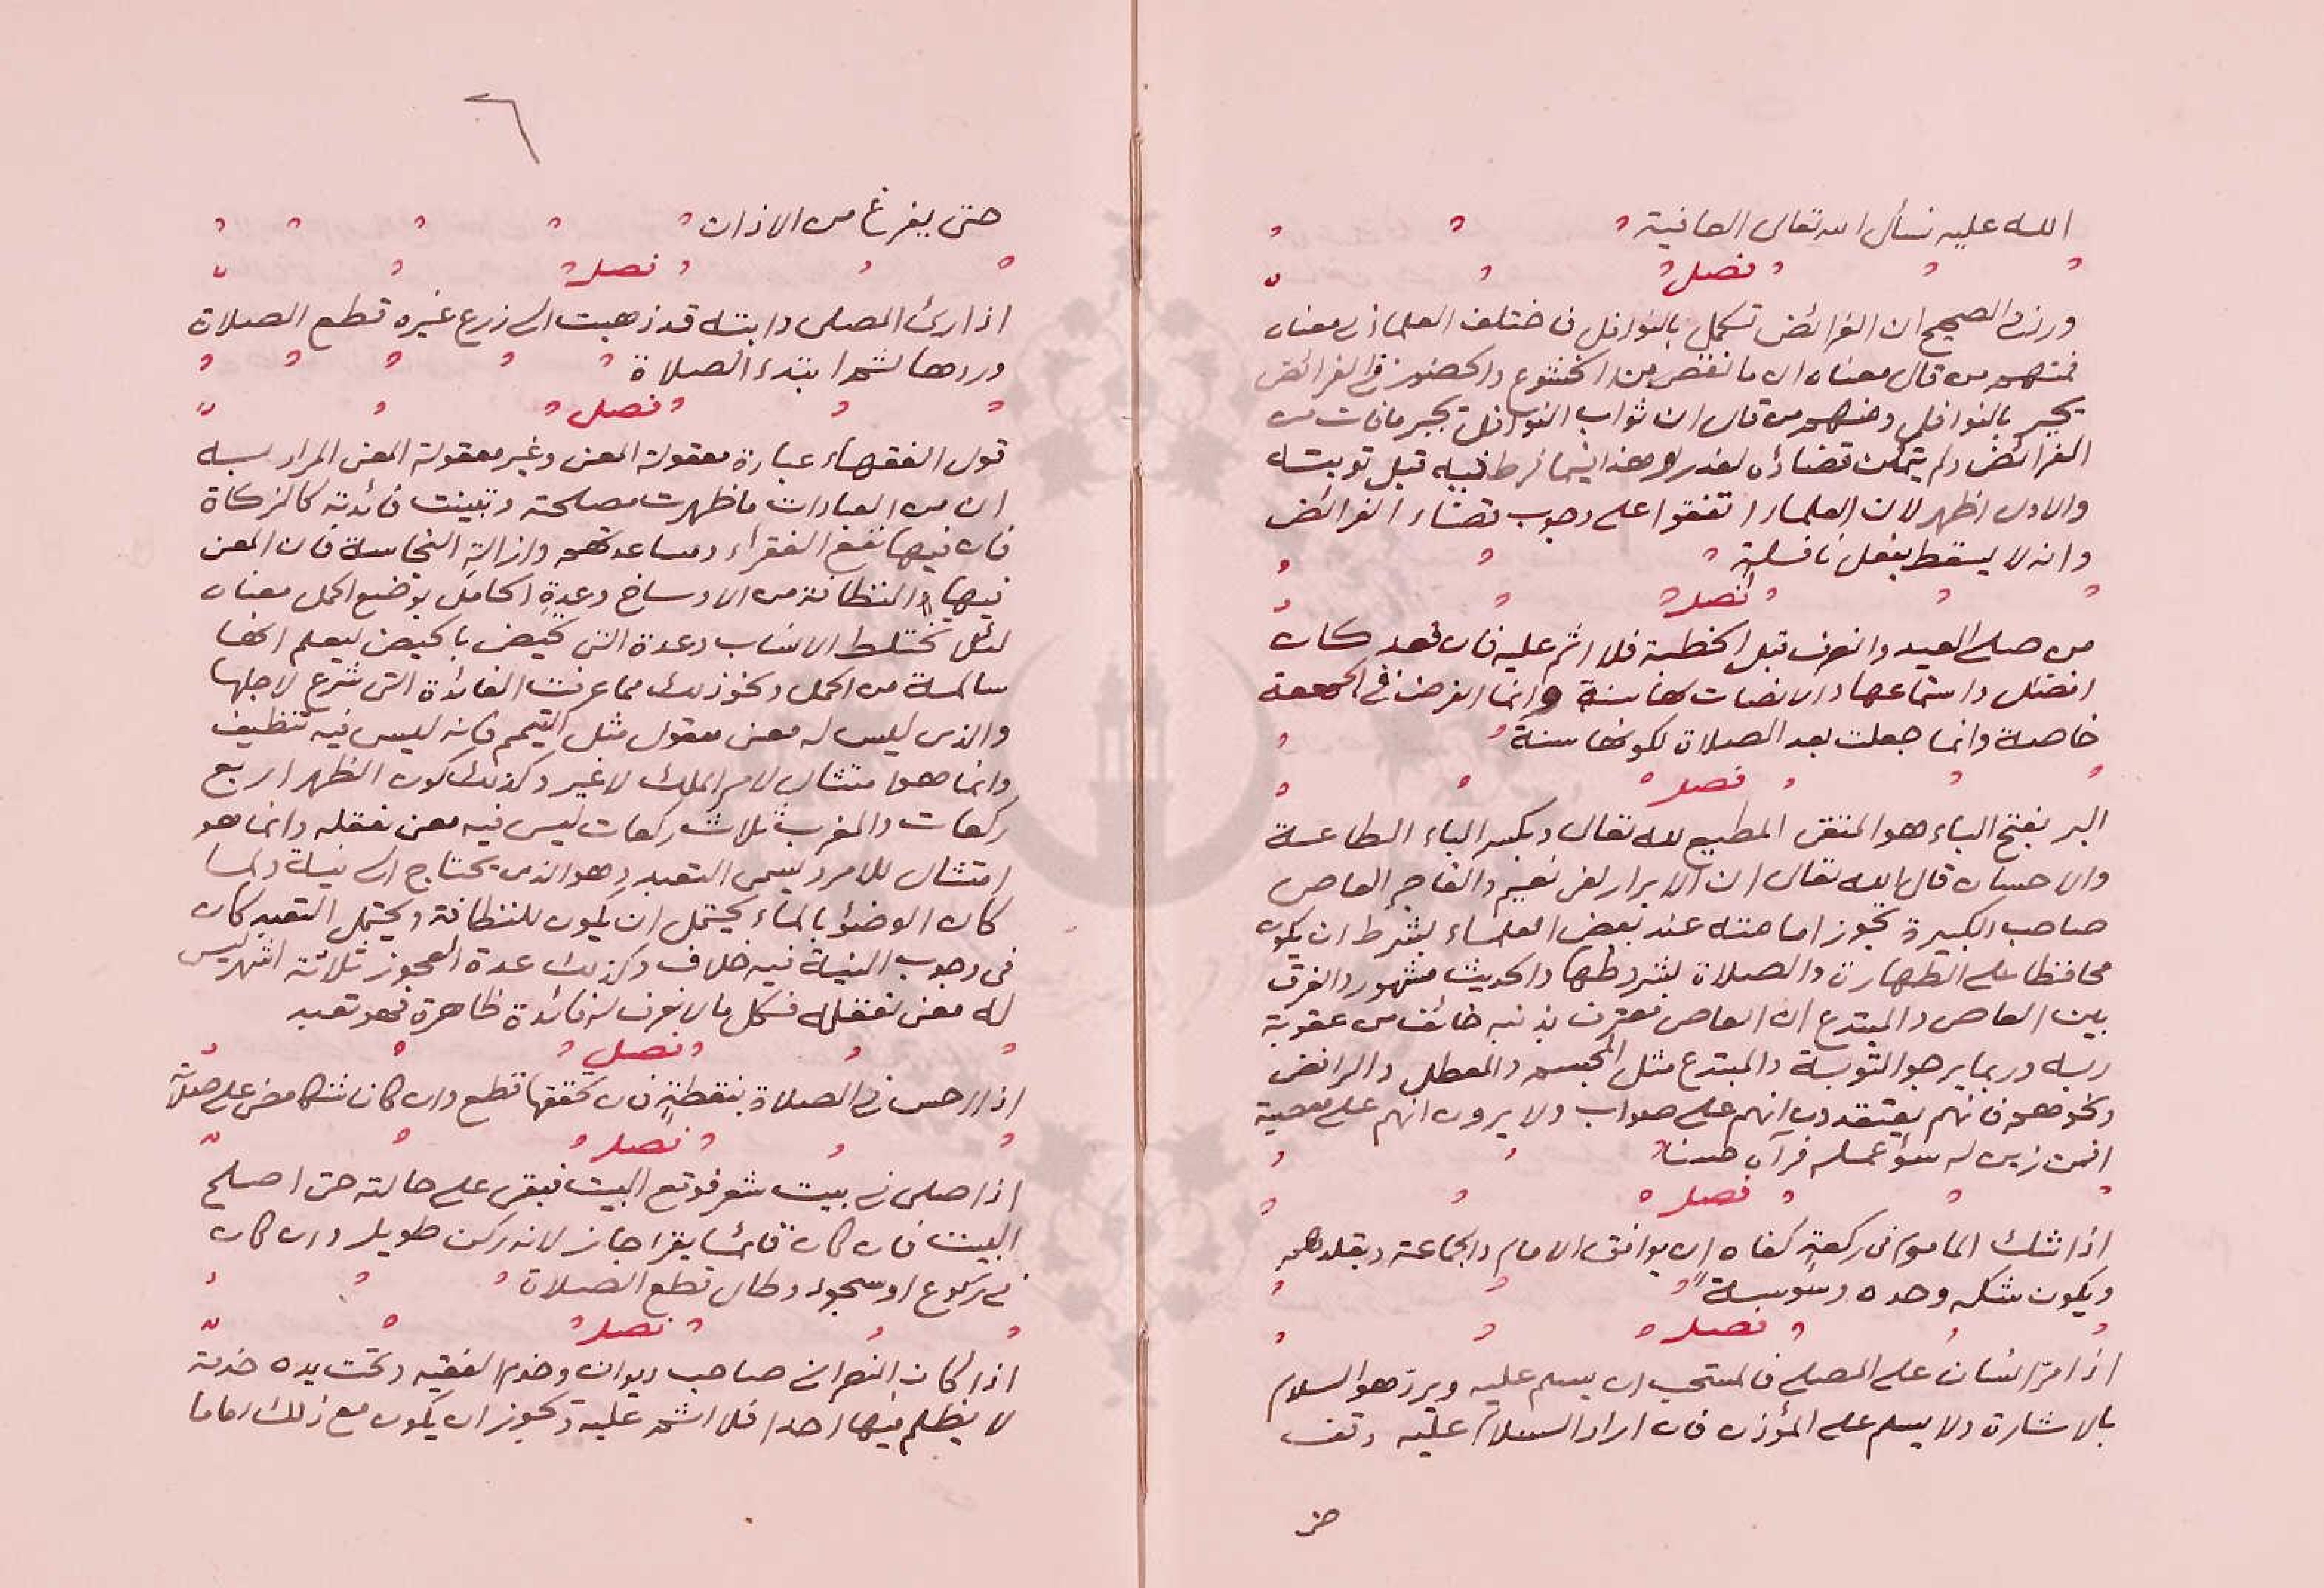 الله عليه نسأل الله تعالى العافية
فصل
ورد في الصحيح ان الفرائض تكمل بالنوافل فاختلف العلما في معناه
فمنهم من قال معناه ان ما نقص من الخشوع والحضور في الفرائض
يجبر بالنوافل ومنهم من قال ان ثواب النوافل يجبر ما فات من
الفرائض ولم يتمكن قضاؤه لعذر او هذا فيما فرط فيه قبل توبته
والاول اظهر لان العلماء اتفقوا على وجوب قضاء الفرائض
وانه لا يسقط بفعل نافلة
فصل
من صلى العيد وانصرف قبل الخطبة فلا اثم عليه فان قعد كان
افضل واستماعها والانصات لها سنة وانما الفرض في الجمعة
خاصة وانما جعلت بعد الصلاة لكونها سنة
فصل
البر بفتح الباء هو المتقى المطيع لله تعالى وبكسر الباء الطاعة
والاحسان قال الله تعالى ان الابرار لفى نعيم والفاجر العاصى
صاحب الكبيرة تجوز امامته عند بعض العلماء بشرط ان يكون
محافظا على الطهارة والصلاة بشروطها والحديث مشهور والفرق
بين العاصى والمبتدع ان العاصى معترف بذنبه خائف من عقوبة
ربه وربما يرجو التوبة والمبتدع مثل المجسمه والمعطل والرافضى
ونحوهم فانهم يعتقدون انهم على صواب ولا يرون انهم على معصية
افمن زين له سؤ عمله فرآه حسنا
فصل
اذا شك الماموم فى ركعة كفاه ان يوافق الامام والجماعة ويقلدهم
ويكون شكه وحده وسوسة
فصل
اذا مرّ انسان على المصلى فالمستحب ان يسلم عليه ويردّ هو السلام
بالاشارة ولا يسلم على المؤذن فان اراد السلام عليه وقف
حتى
٦
حتى يفرغ من الاذان
فصل
اذا رئ المصلى دابته قد ذهبت الى زرع غيره قطع الصلاة
وردها ثم ابتدء الصلاة
فصل
قول الفقهاء عبارة معقولة المعنى وغير معقولة المعنى المراد به
ان من العبادات ما ظهرت مصلحته وتبينت فائدته كالزكاة
فان فيها نفع الفقراء ومساعدتهم وازالة النجاسة فان المعنى
فيها النظافة من الاوساخ وعدة الحامل بوضع الحمل معناه
لئلا تختلط الانساب وعدة التى تحيض بالحيض ليعلم انها
سالمة من الحمل ونحو ذلك مما عرفت الفائدة التى شرع لاجلها
والذى ليس له معنى معقول مثل التيمم فانه ليس فيه تنظيف
وانما هو امتثال لامر الملك لا غير وكذلك كون الظهر اربع
ركعات والمغرب ثلاث ركعات ليس فيه معنى نعقله وانما هو
امتثال للامر ويسمى التعبد وهو الذى يحتاج الى نية ولما
كان الوضؤ بالماء يحتمل ان يكون للنظافة ويحتمل التعبد كان
فى وجوب النية فيه خلاف وكذلك عدة العجوز ثلاثة اشهر ليس
له معنى نعقله فكل ما لا نعرف له فائدة ظاهرة فهو تعبد
فصل
اذا احس في الصلاة بنقطة فان تحققها قطع وان كان شكا مضى على صلاته
فصل
اذا صلى في بيت شعر فوقع البيت فبقى على حالته حتى اصلح
البيت فان كان قائما يقرا جاز لانه ركن طويل وان كان
في ركوع او سجود وطال قطع الصلاة
فصل
اذا كان النصرانى صاحب ديوان وخدم الفقيه وتحت يده خدمة
لا يظلم فيها احدا فلا اثم عليه وتجوز ان يكون مع ذلك اماما